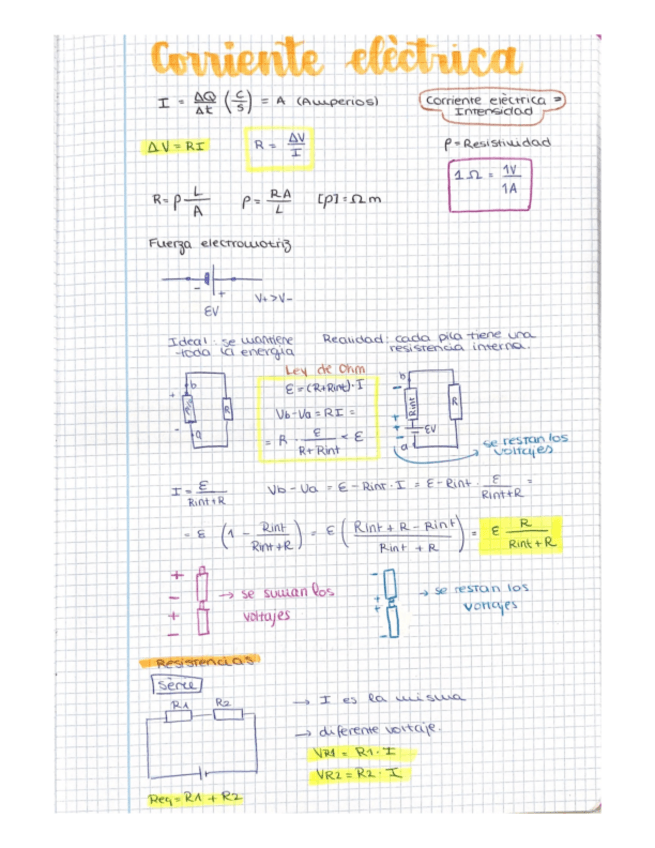 Corriente elèctrica
I = ΔQ/Δt (C/s) = A (Amperios)
Corriente elèctrica =
Intensidad
ΔV = RI
R = ΔV/I
ρ = Resistividad
1Ω = 1V/1A
R = ρ L/A
ρ = RA/L
[ρ] = Ω m
Fuerza electromotriz
- +
V+ > V-
EV
Ideal: se mantiene
toda la energía
Realidad: cada pila tiene una
resistencia interna.
Ley de Ohm
ε = (R+Rint)·I
Vb - Va = RI =
= R · ε/(R+Rint) < ε
+ b - a R
b - Rint + + EV - a R
se restan los
voltajes
I = ε/(Rint+R)
Vb - Va = ε - Rint · I = ε - Rint · ε/(Rint+R) =
= ε (1 - Rint/(Rint+R)) = ε ((Rint + R - Rint)/(Rint + R)) = ε R/(Rint + R)
+ - + -
→ se suman los
voltajes
- + + -
→ se restan los
voltajes
Resistencias
Sèrie
R1 R2
→ I es la misma
→ diferente voltaje.
VR1 = R1 · I
VR2 = R2 · I
Req = R1 + R2